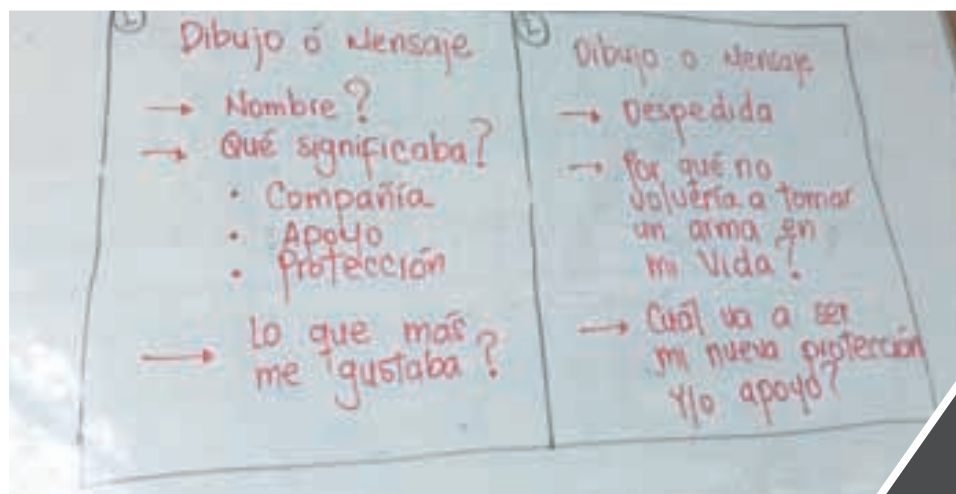 ①
Dibujo ó Mensaje
→ Nombre?
→ Qué significaba?
• Compañía
• Apoyo
• Protección
→ Lo que más
me gustaba?
②
Dibujo o Mensaje
→ Despedida
→ Por qué no
volvería a tomar
un arma en
mi vida?
→ Cuál va a ser
mi nueva protección
y/o apoyo?